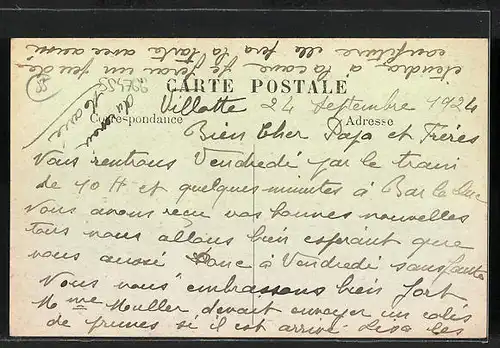 CARTE POSTALE
Correspondance
Adresse
Villotte 24 Septembre 1924
Bien Cher Papa et Frères
Vous rentrons Vendredi par le train
de 10 H et quelques minutes à Bar le Duc
Nous avons reçu vos bonnes nouvelles
tous nous allons bien espérant que
vous aussi Donc à Vendredi sans faute
Nous vous embrassons bien fort
Mme Muller devait envoyer un colis
de prunes si il est arrivé Lisa les
étendra à la cave je ferai un peu de
confiture elle fera la tarte avec aussi
Marie